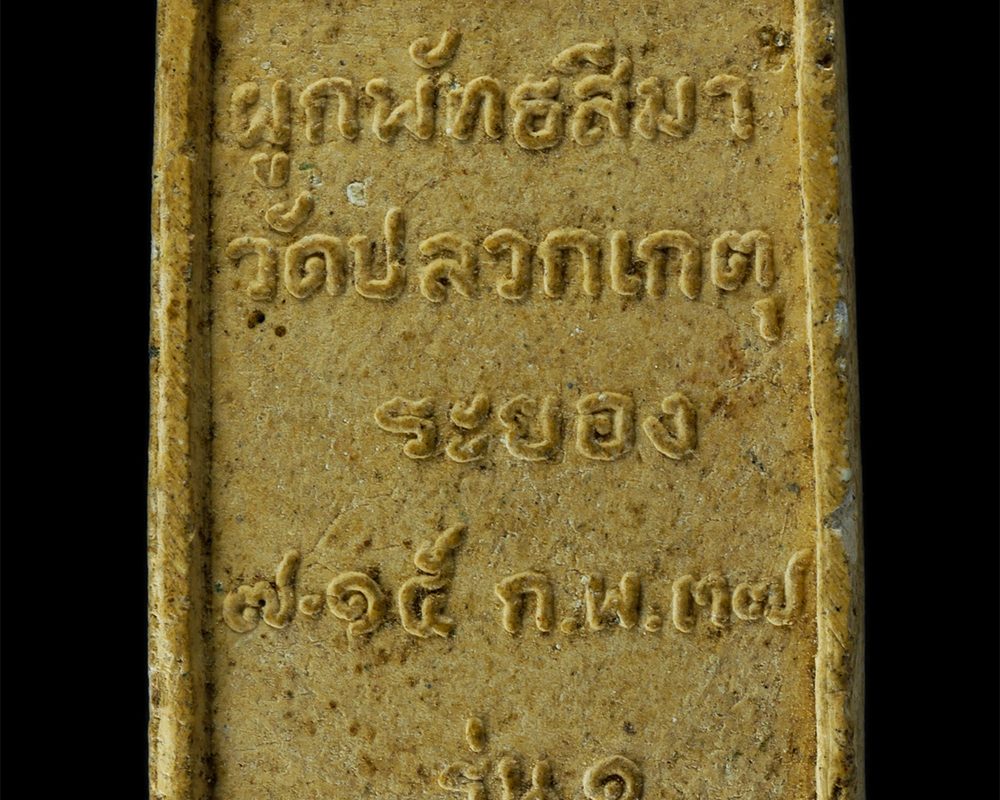 ผูกพัทธสีมา
วัดปลวกเกตุ
ระยอง
๗-๑๕ ก.พ.๓๗
รุ่น ๑